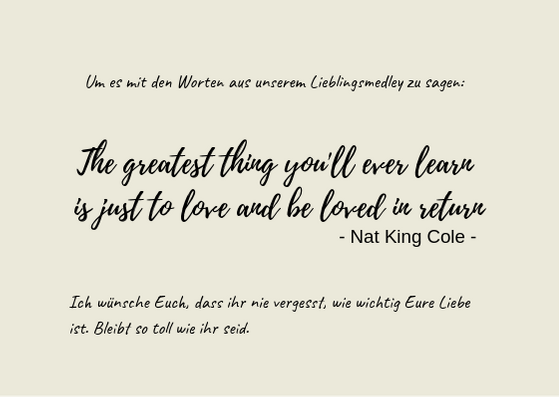 Um es mit den Worten aus unserem Lieblingsmedley zu sagen:
The greatest thing you'll ever learn
is just to love and be loved in return
- Nat King Cole -
Ich wünsche Euch, dass ihr nie vergesst, wie wichtig Eure Liebe
ist. Bleibt so toll wie ihr seid.